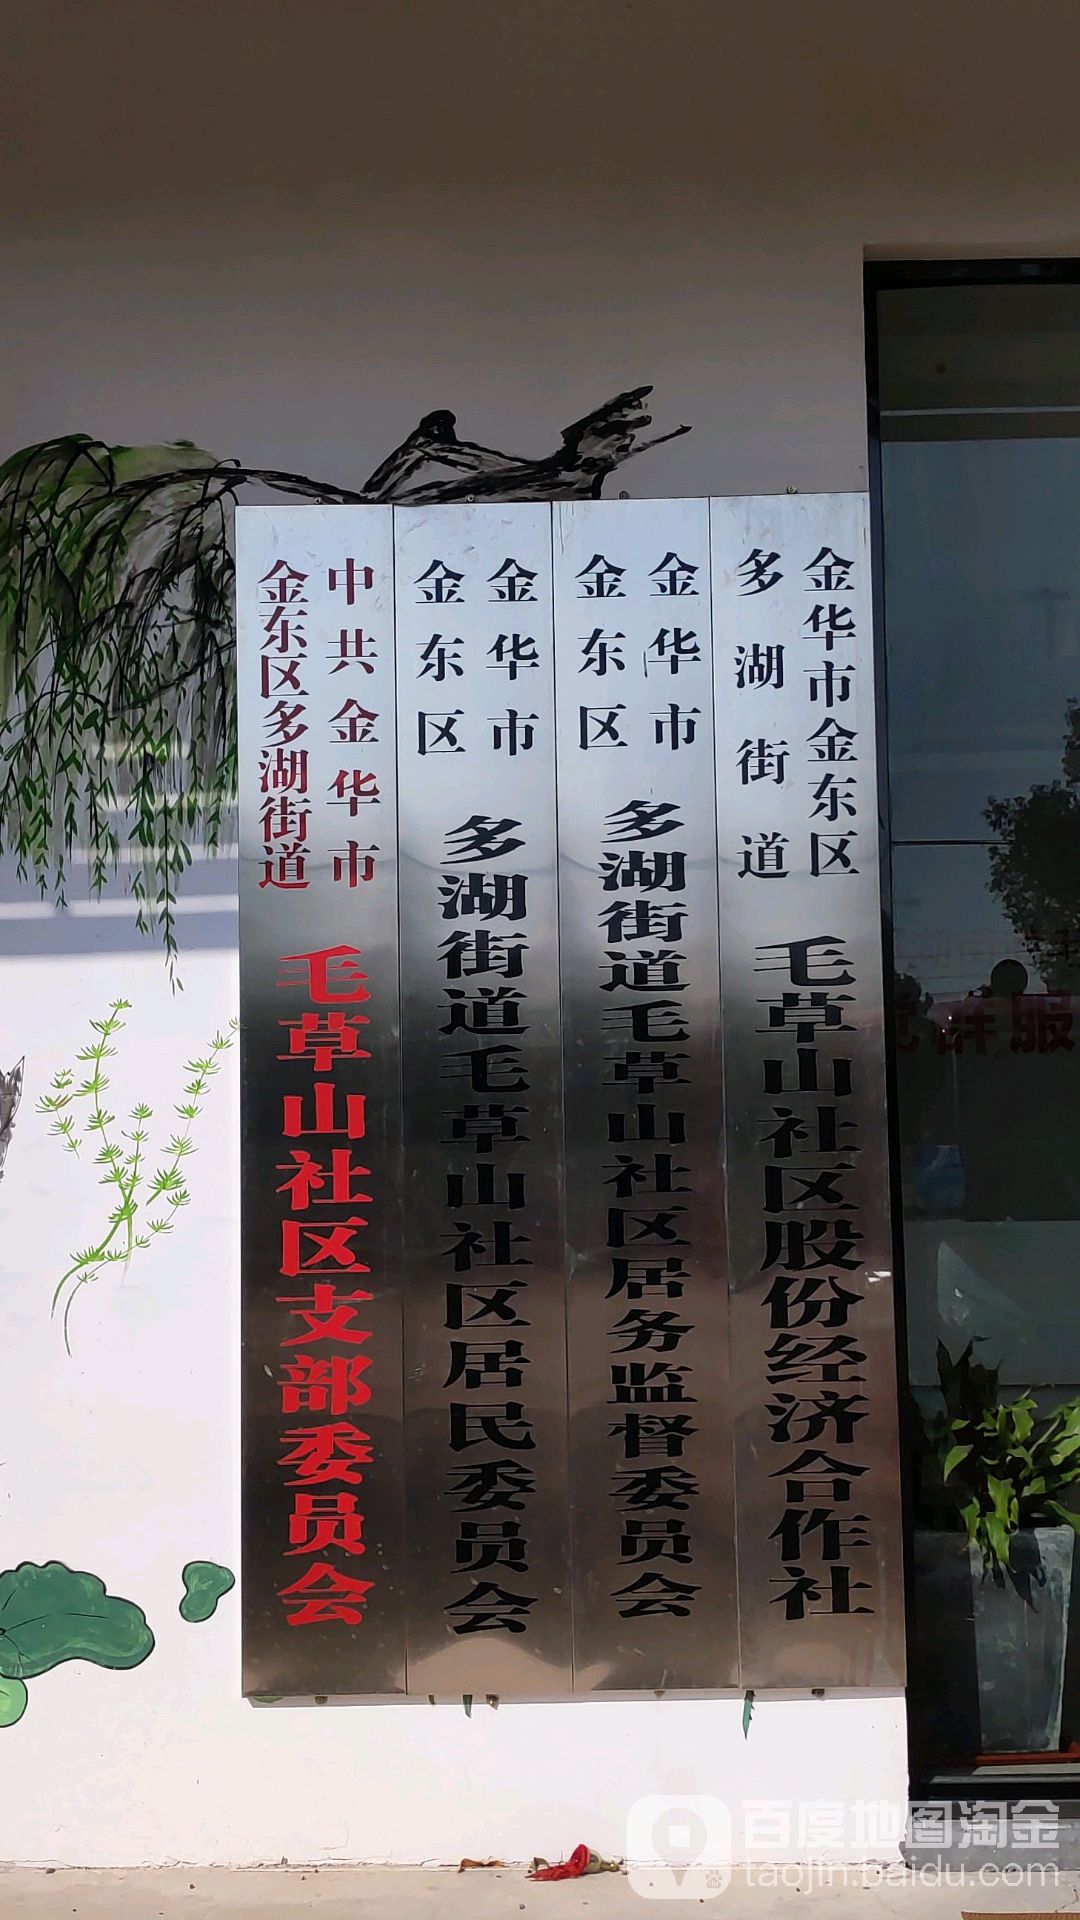 中共金华市
金东区多湖街道
毛草山社区支部委员会
金华市
金东区
多湖街道毛草山社区居民委员会
金华市
金东区
多湖街道毛草山社区居务监督委员会
金华市金东区
多湖街道
毛草山社区股份经济合作社
党群服
百度地图淘金
taojin.baidu.com